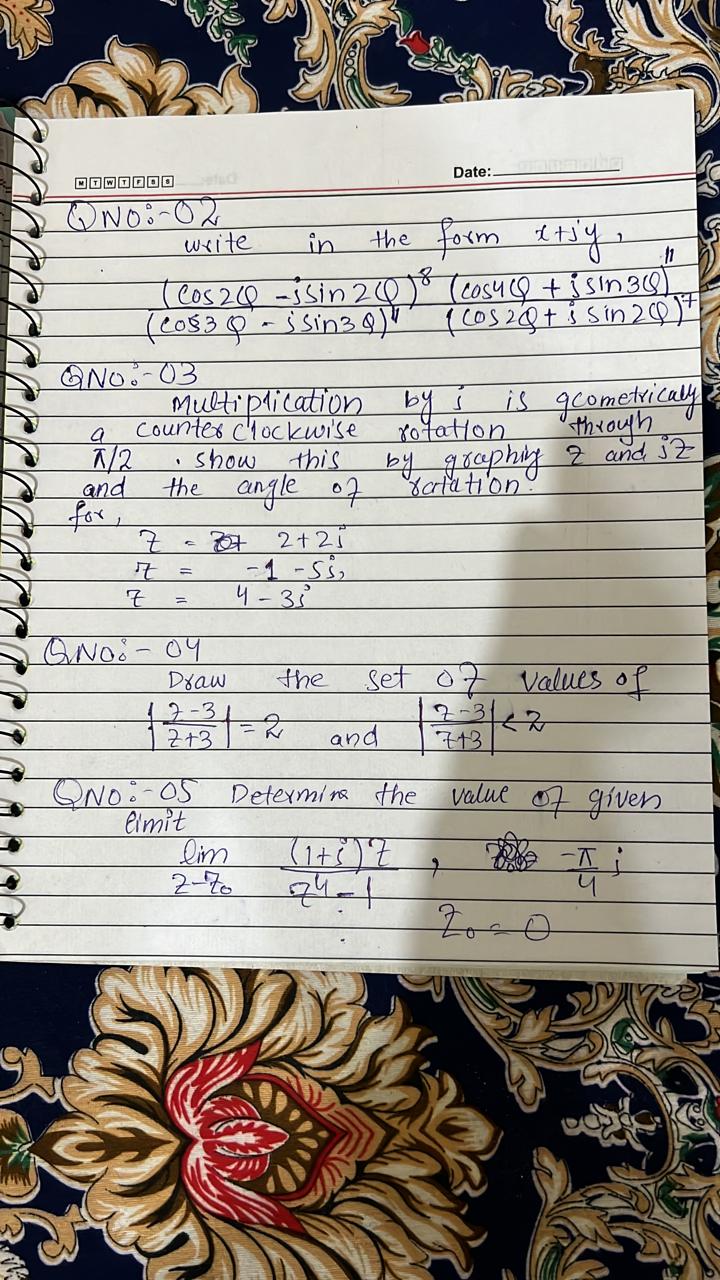 M T W T F S S
Date:
QNO:-02
write in the form x+iy,
(cos2Q -isin2Q)⁸ (cos4Q + isin3Q)¹¹
(cos3Q - isin3Q)⁴ (cos2Q+ i sin2Q)⁷
QNO:-03
Multiplication by i is geometrically
a counterclockwise rotation through
π/2 . show this by graphing z and iz
and the angle of rotation.
for,
z = 2+2i
z = -1 -5i,
z = 4-3i
QNO:- 04
Draw the set of values of
|z-3/z+3| = 2 and |z-3/z+3| < 2
QNO:-05 Determine the value of given
limit
lim z-z₀ (1+i)z/z⁴-1 , -π/4 i
z₀ = 0